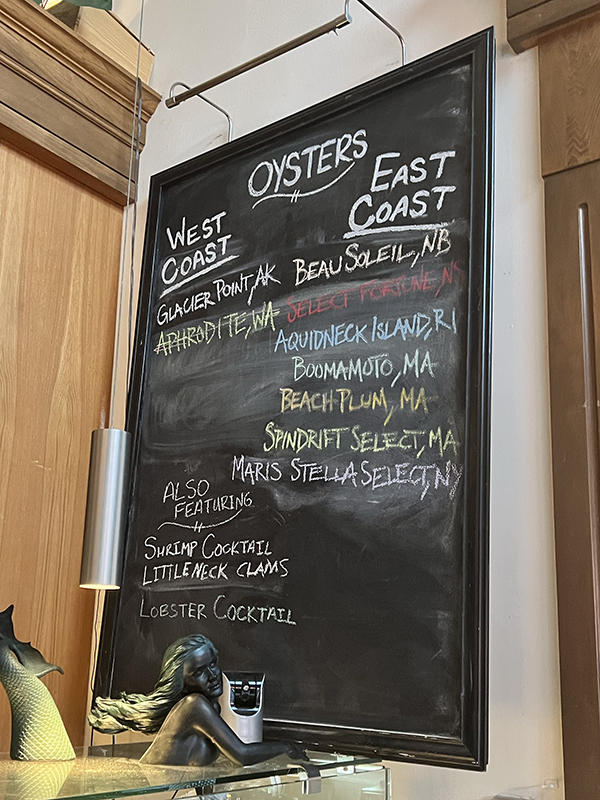 OYSTERS
WEST
COAST
GLACIER POINT, AK
APHRODITE, WA
EAST
COAST
BEAU SOLEIL, NB
SELECT FORTUNE, NS
AQUIDNECK ISLAND, RI
BOOMAMOTO, MA
BEACH PLUM, MA
SPINDRIFT SELECT, MA
MARIS STELLA SELECT, NY
ALSO
FEATURING
SHRIMP COCKTAIL
LITTLENECK CLAMS
LOBSTER COCKTAIL